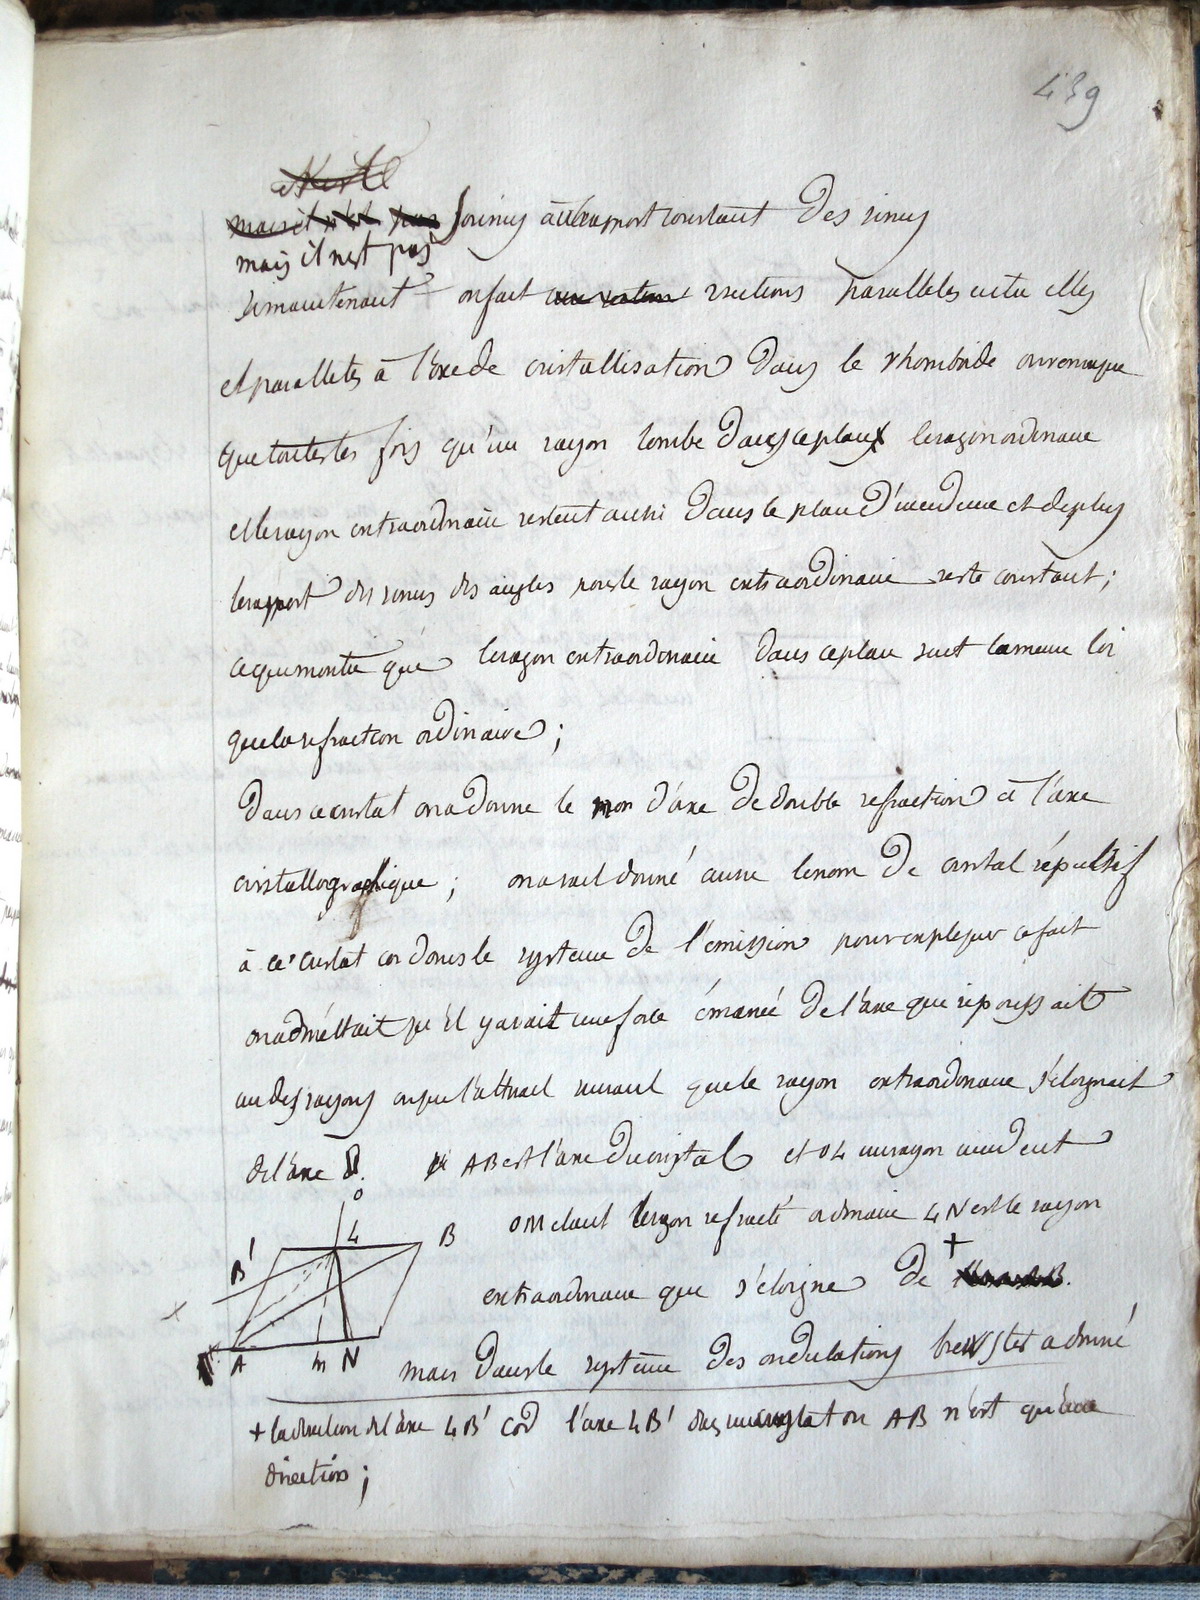 439
mais il n'est pas soumis au rapport constant des sinus
mais il n'est pas
si maintenant on fait sections paralleles entre elles
et paralleles à l'axe de cristallisation dans le rhomboide on remarque
que toutes les fois qu'un rayon tombe dans ce plan le rayon ordinaire
et le rayon extraordinaire restent aussi dans le plan d'incidence et de plus
le rapport des sinus des angles pour le rayon extraordinaire reste constant;
ce qui montre que le rayon extraordinaire dans ce plan suit la meme loi
que la refraction ordinaire;
Dans ce cristal on a donné le nom d'axe de double refraction à l'axe
cristallographique; on avait donné aussi le nom de cristal répulsif
à ce cristal car dans le systeme de l'émission pour expliquer ce fait
on admettait qu'il y avait une force émanée de l'axe que repoussait
un des rayons que le rayon extraordinaire s'éloignait
de l'axe. AB est l'axe du cristal et OL un rayon incident
O
OM etant le rayon refracté ordinaire LN est le rayon
L B
B'
extraordinaire que s'éloigne de +
A m N
mais dans le systeme des ondulations brewster a donné
+ la direction de l'axe LB' car l'axe LB' dans un cristal ou AB n'est qu'une
direction;